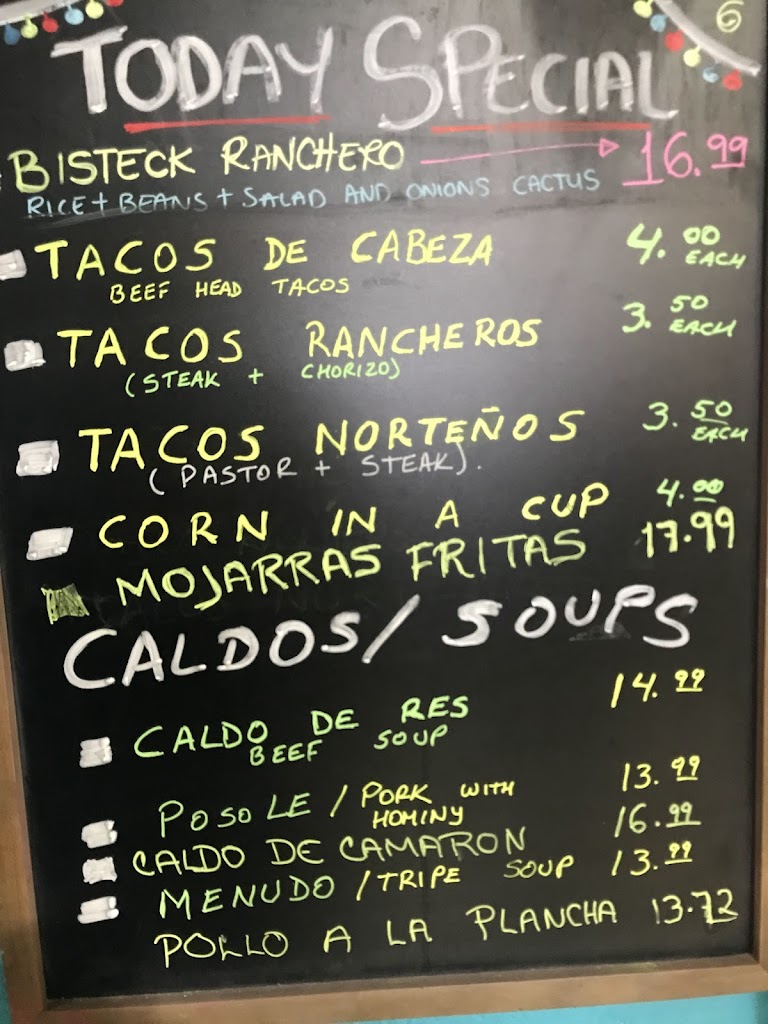 6
TODAY SPECIAL
BISTECK RANCHERO → 16.99
RICE + BEANS + SALAD AND ONIONS CACTUS
TACOS DE CABEZA 4.00 EACH
BEEF HEAD TACOS
TACOS RANCHEROS 3.50 EACH
(STEAK + CHORIZO)
TACOS NORTEÑOS 3.50 EACH
(PASTOR + STEAK).
CORN IN A CUP 4.00
MOJARRAS FRITAS 17.99
CALDOS/SOUPS
CALDO DE RES 14.99
BEEF SOUP
POSOLE / PORK WITH 13.99
HOMINY
CALDO DE CAMARON 16.99
MENUDO / TRIPE SOUP 13.99
POLLO A LA PLANCHA 13.72